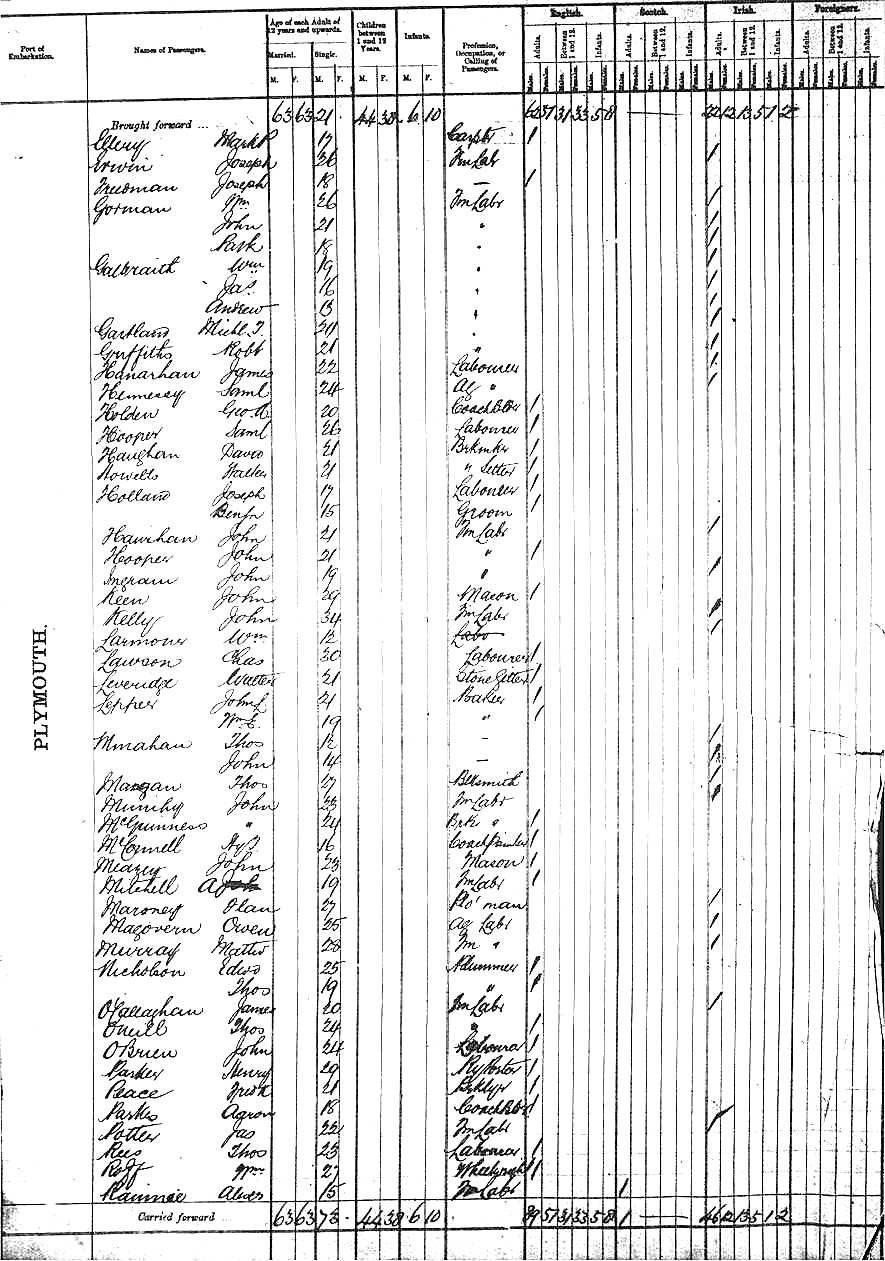 Port of Embarkation. Names of Passengers. Age of each Adult of 12 years and upwards. Children between 1 and 12 Years. Infants. Profession, Occupation, or Calling of Passengers. English. Scotch. Irish. Foreigners.
Married. Single. Adults. Between 1 and 12. Infants. Adults. Between 1 and 12. Infants. Adults. Between 1 and 12. Infants. Adults. Between 1 and 12. Infants.
M. F. M. F. M. F. M. F. Males. Females. Males. Females. Males. Females. Males. Females. Males. Females. Males. Females. Males. Females. Males. Females. Males. Females. Males. Females. Males. Females. Males. Females.
Brought forward ... 63 63 21 44 38 6 10 57 31 33 5 8 22 12 13 5 1 2
Ellery Mark P 17 Carptr /
Erwin Joseph 26 Fm Labr /
Freedman Joseph 18 — /
Gorman Wm 26 Fm Labr /
John 21 " /
Patk 18 " /
Galbraith Wm 19 " /
Jas 16 " /
Andrew 13 " /
Gartland Michl. J. " /
Griffiths Robt 21 " /
Hanarhan James 22 Labourer /
Hennessy Saml 24 Ag " /
Holden 20 Coach Bldr /
Hooper Saml 26 Labourer /
Haughan David 21 Brkmkr /
Howells Walter 21 " Setter /
Holland Joseph 17 Labourer /
Benjn 15 Groom /
John 21 Fm Labr /
Hooper John 21 " /
Ingram John 19 " /
Keen John 29 Mason /
Kelly John 34 Fm Labr /
Larmour Wm 12 Labr /
Lawson Chas 30 Labourer /
Leveridge Walter 21 /
Lepper John L 21 Baker /
Wm E. 19 " /
Mmahan Thos 12 – /
John 14 — /
Mangan Thos 17 Blksmith /
John 23 Fm Labr /
McGuinness " 24 Brk " /
McConnell 16 Coach Painter /
John 23 Mason /
Mitchell A 19 Fm Labr /
Maroney 27 man /
Magovern Owen 25 Ag Labr /
Murray Mattw 28 Fm " /
Nicholson Edwd 25 /
Thos 19 " /
O'Callaghan James 20 Fm Labr /
Oneill Thos 24 " /
O'Brien John 24 Labourer /
Parker Henry 29 Ry Porter /
Peace Fredk 21 Brklyr /
Parkes Aaron 18 Coach Bldr /
Potter Jas 22 Fm Labr /
Rees Thos 23 Labourer /
Rolf Wm 27 Wheelwright /
15 Fm Labr /
Carried forward 63 63 73 44 38 6 10 39 57 31 33 5 8 1 46 12 13 5 1 2
PLYMOUTH.